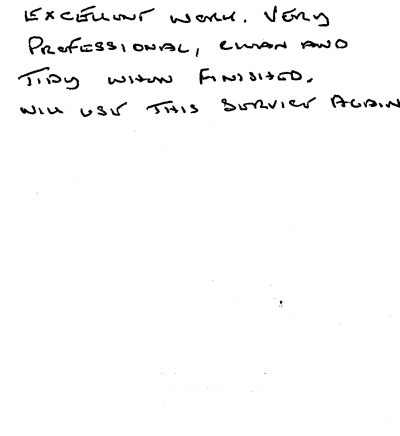 EXCELLENT WORK. VERY
PROFESSIONAL, CLEAN AND
TIDY WHEN FINISHED.
WILL USE THIS SERVICE AGAIN